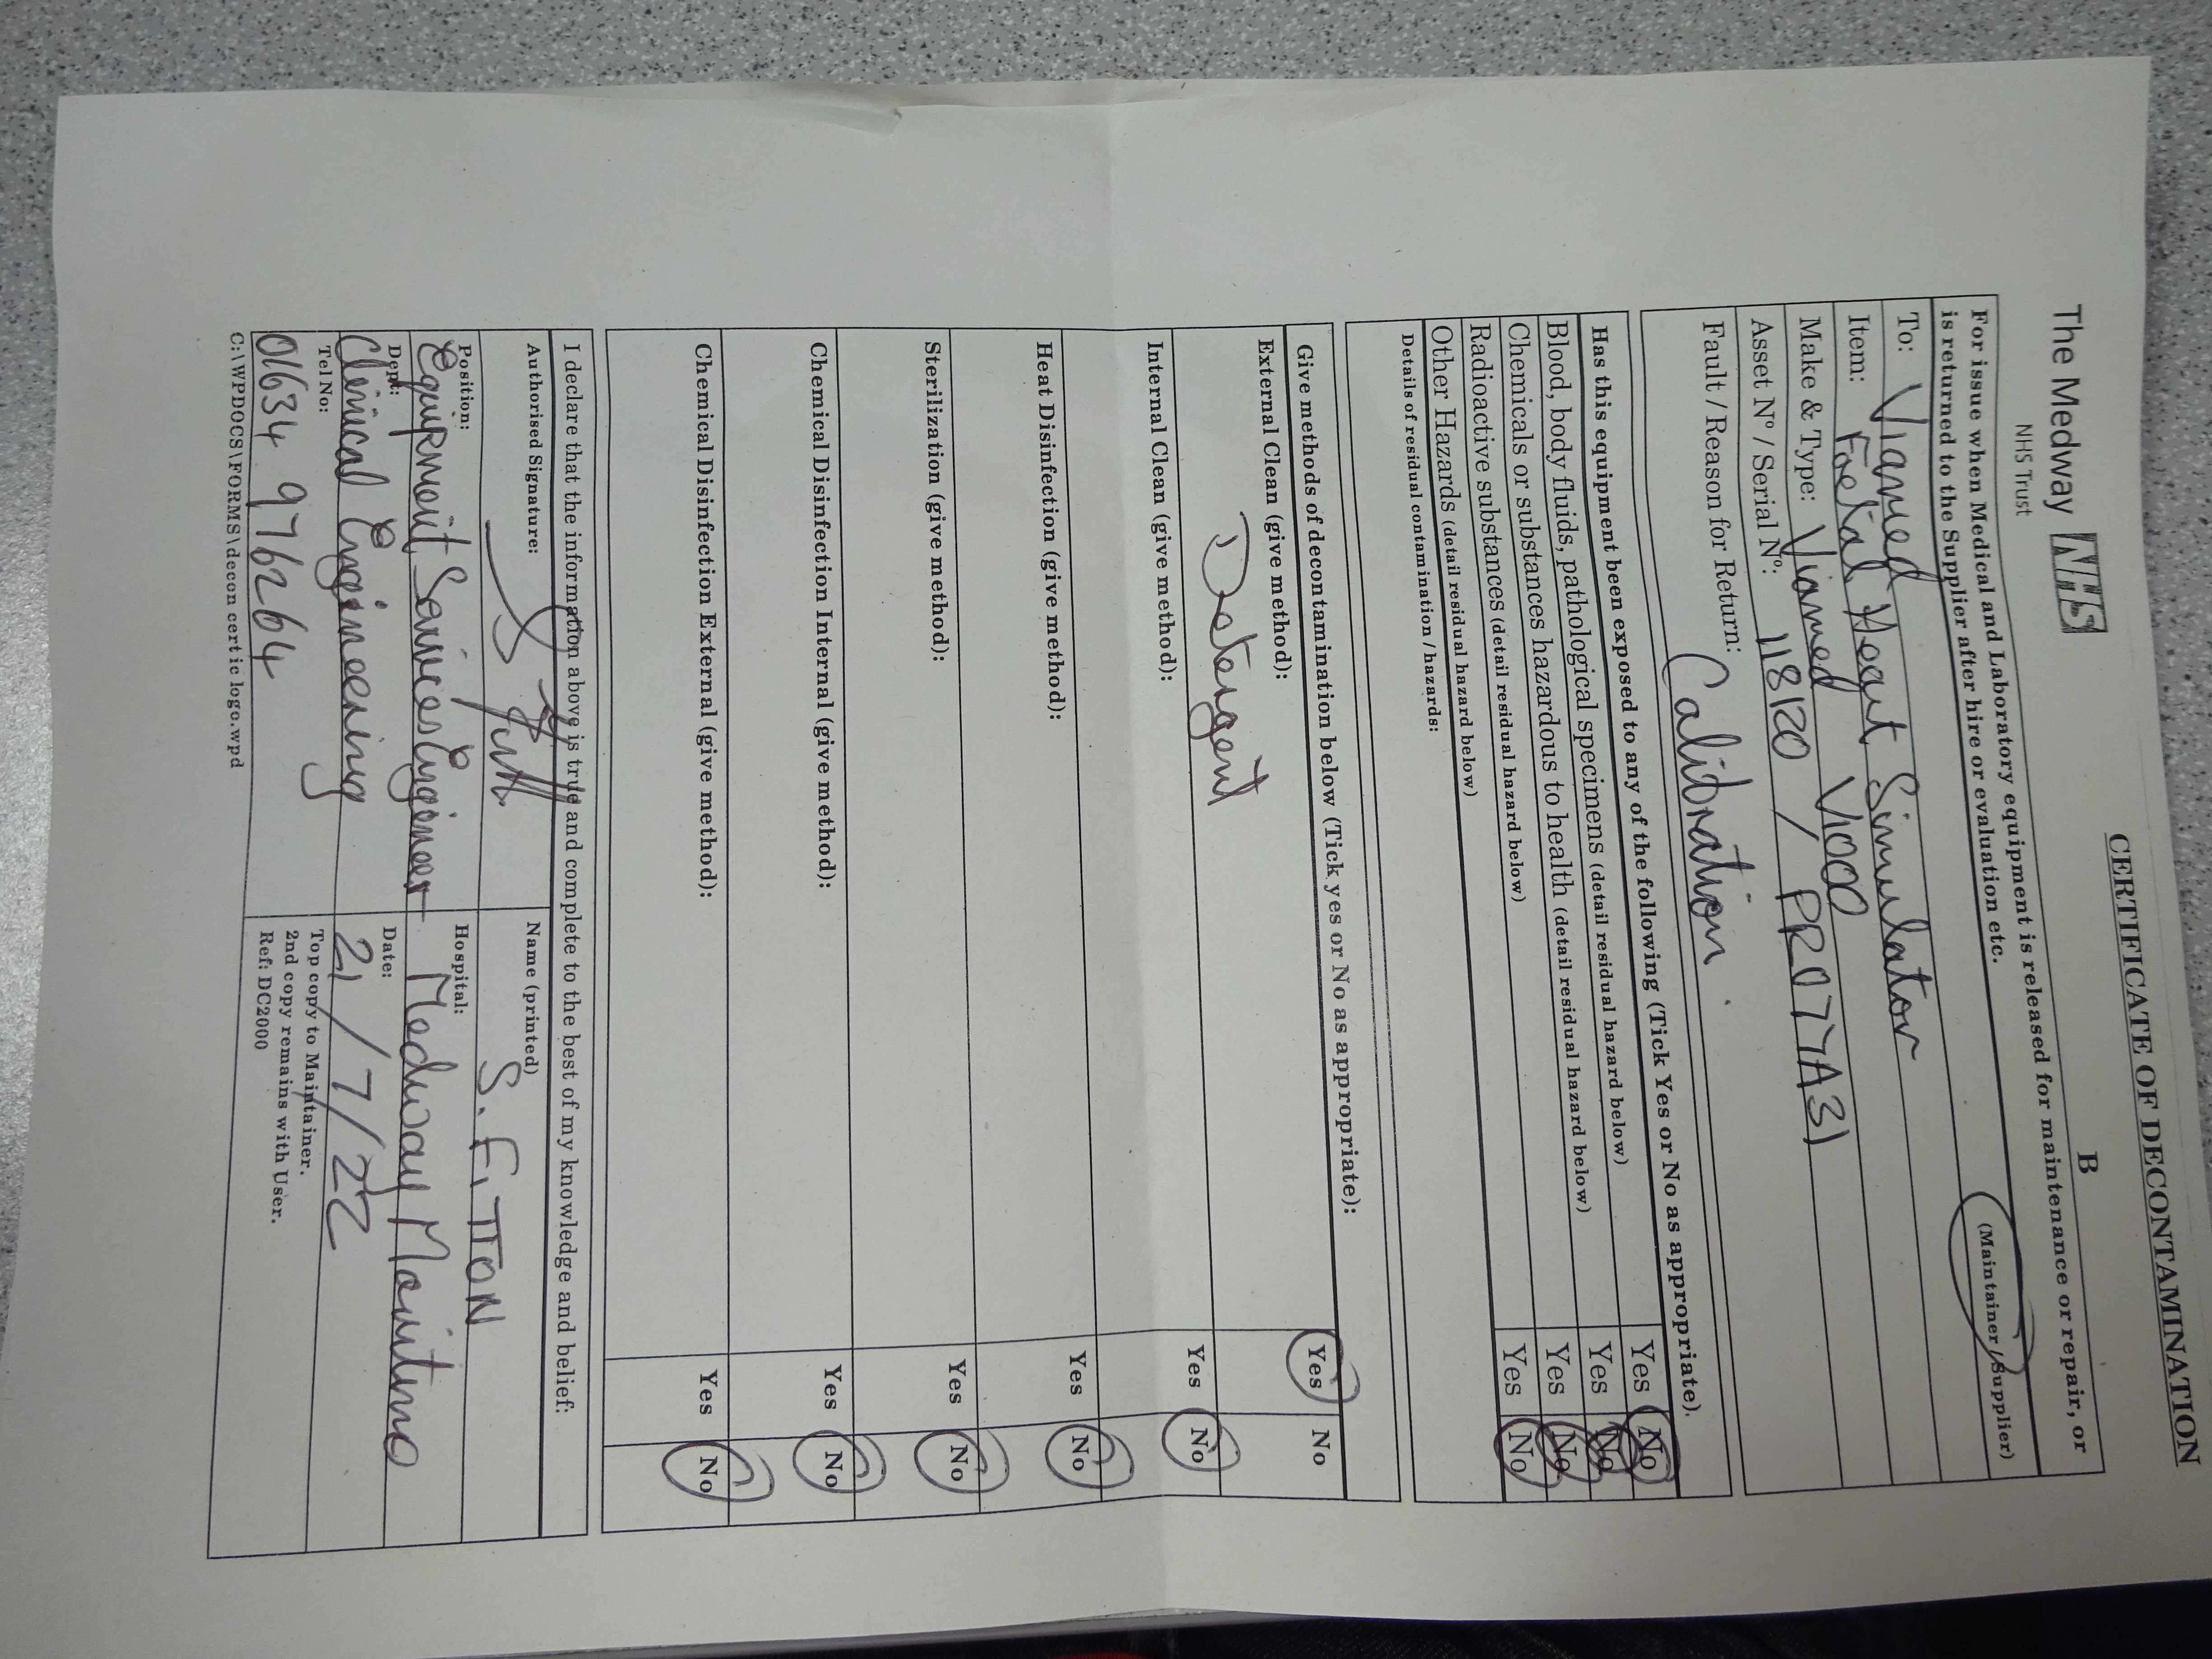 CERTIFICATE OF DECONTAMINATION
The Medway NHS
NHS Trust
B
For issue when Medical and Laboratory equipment is released for maintenance or repair, or
is returned to the Supplier after hire or evaluation etc.
To: Viamed (Maintainer / Supplier)
Item: Foetal Heart Simulator
Make & Type: Viamed V1000
Asset Nº / Serial Nº: 118120 / PR077A31
Fault / Reason for Return: Calibration.
Has this equipment been exposed to any of the following (Tick Yes or No as appropriate).
Blood, body fluids, pathological specimens (detail residual hazard below) Yes No
Chemicals or substances hazardous to health (detail residual hazard below) Yes No
Radioactive substances (detail residual hazard below) Yes No
Other Hazards (detail residual hazard below) Yes No
Details of residual contamination / hazards:
Give methods of decontamination below (Tick yes or No as appropriate):
External Clean (give method): Yes No
Detergent
Internal Clean (give method): Yes No
Heat Disinfection (give method): Yes No
Sterilization (give method): Yes No
Chemical Disinfection Internal (give method): Yes No
Chemical Disinfection External (give method): Yes No
I declare that the information above is true and complete to the best of my knowledge and belief:
Authorised Signature: Name (printed) S. FITTON
Position: Equipment Services Engineer Hospital: Medway Maritime
Dept: Clinical Engineering Date: 21/7/22
Tel No: 01634 976264 Top copy to Maintainer.
2nd copy remains with User.
Ref: DC2000
C:\WPDOCS\FORMS\decon certic logo.wpd